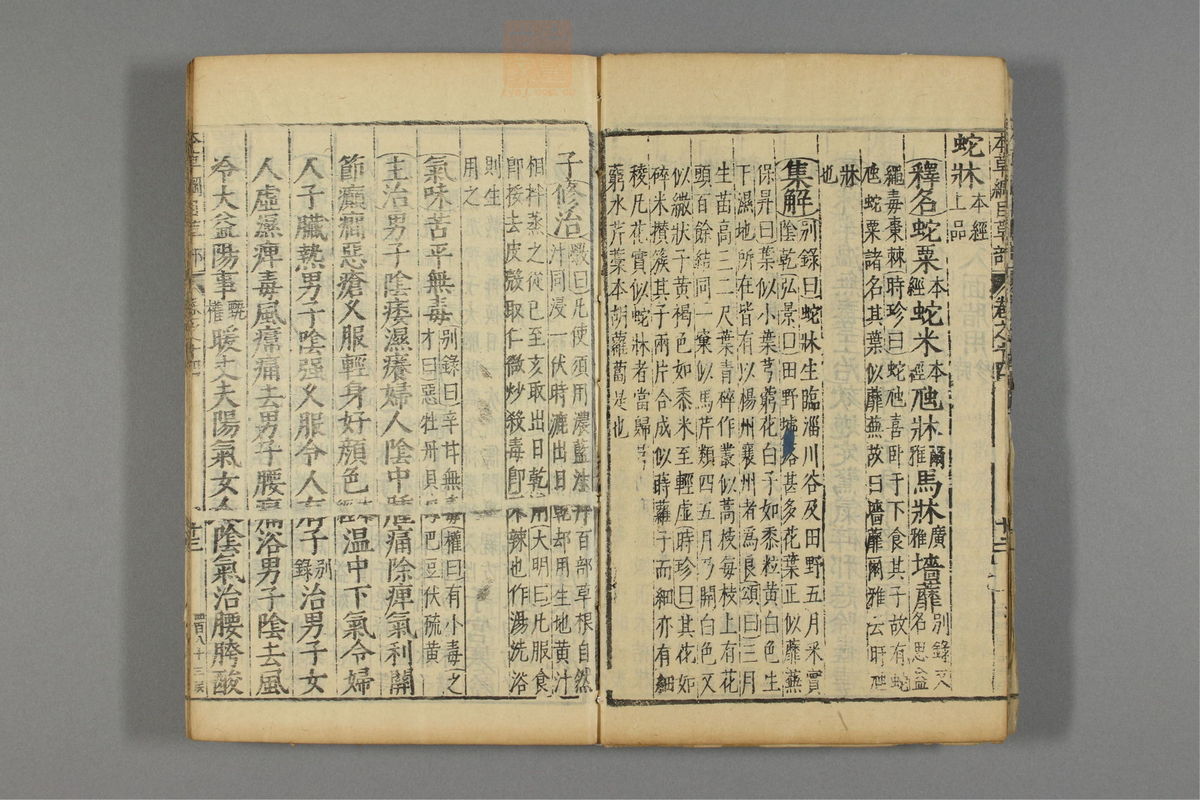 本草綱目草部 卷之十四
蛇牀 本經上品
釋名蛇粟本經蛇米本經虺牀爾雅馬牀廣雅墻蘼别錄又名思益
繩毒棗棘時珍曰蛇虺喜卧于下食其子故有蛇
虺蛇粟諸名其葉似蘼蕪故曰墻蘼爾雅云盱虺
牀也
集解别錄曰蛇牀生臨淄川谷及田野五月采實
陰乾弘景曰田野墟落甚多花葉正似蘼蕪
保昇曰葉似小葉芎藭花白子如黍粒黄白色生
下濕地所在皆有以楊州襄州者爲良頌曰三月
生苗高三二尺葉青碎作叢似蒿枝每枝上有花
頭百餘結同一窠似馬芹類四五月乃開白色又
似繖狀子黄褐色如黍米至輕虛時珍曰其花如
碎米攅簇其子兩片合成似蒔蘿子而細亦有細
稜凡花實似蛇牀者當歸芎
藭水芹藁本胡蘿蔔是也
子修治斆曰凡使須用濃藍汁并百部草根自然
汁同浸一伏時漉出日乾却用生地黄汁
相拌蒸之從巳至亥取出日乾用大明曰凡服食
卽挼去皮殼取仁微炒殺毒卽不辣也作湯洗浴
則生
用之
氣味苦平無毒别錄曰辛甘無毒權曰有小毒之
才曰惡牡丹貝母巴豆伏硫黄
主治男子陰痿濕癢婦人陰中腫痛除痺氣利關
節癲癎惡瘡久服輕身好顔色本經温中下氣令婦
人子臟熱男子陰强久服令人有子别錄治男子女
人虛濕痺毒風㿏痛去男子腰痛浴男子陰去風
冷大益陽事甄權暖丈夫陽氣女人陰氣治腰胯酸
廿三